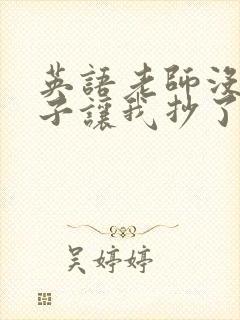 英語老師沒
子讓我抄了
吳婷婷